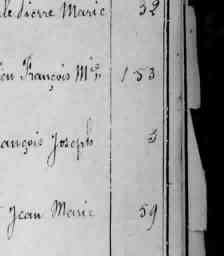 le Pierre Marie 32
François Mie 153
ançois Joseph 3
Jean Marie 59